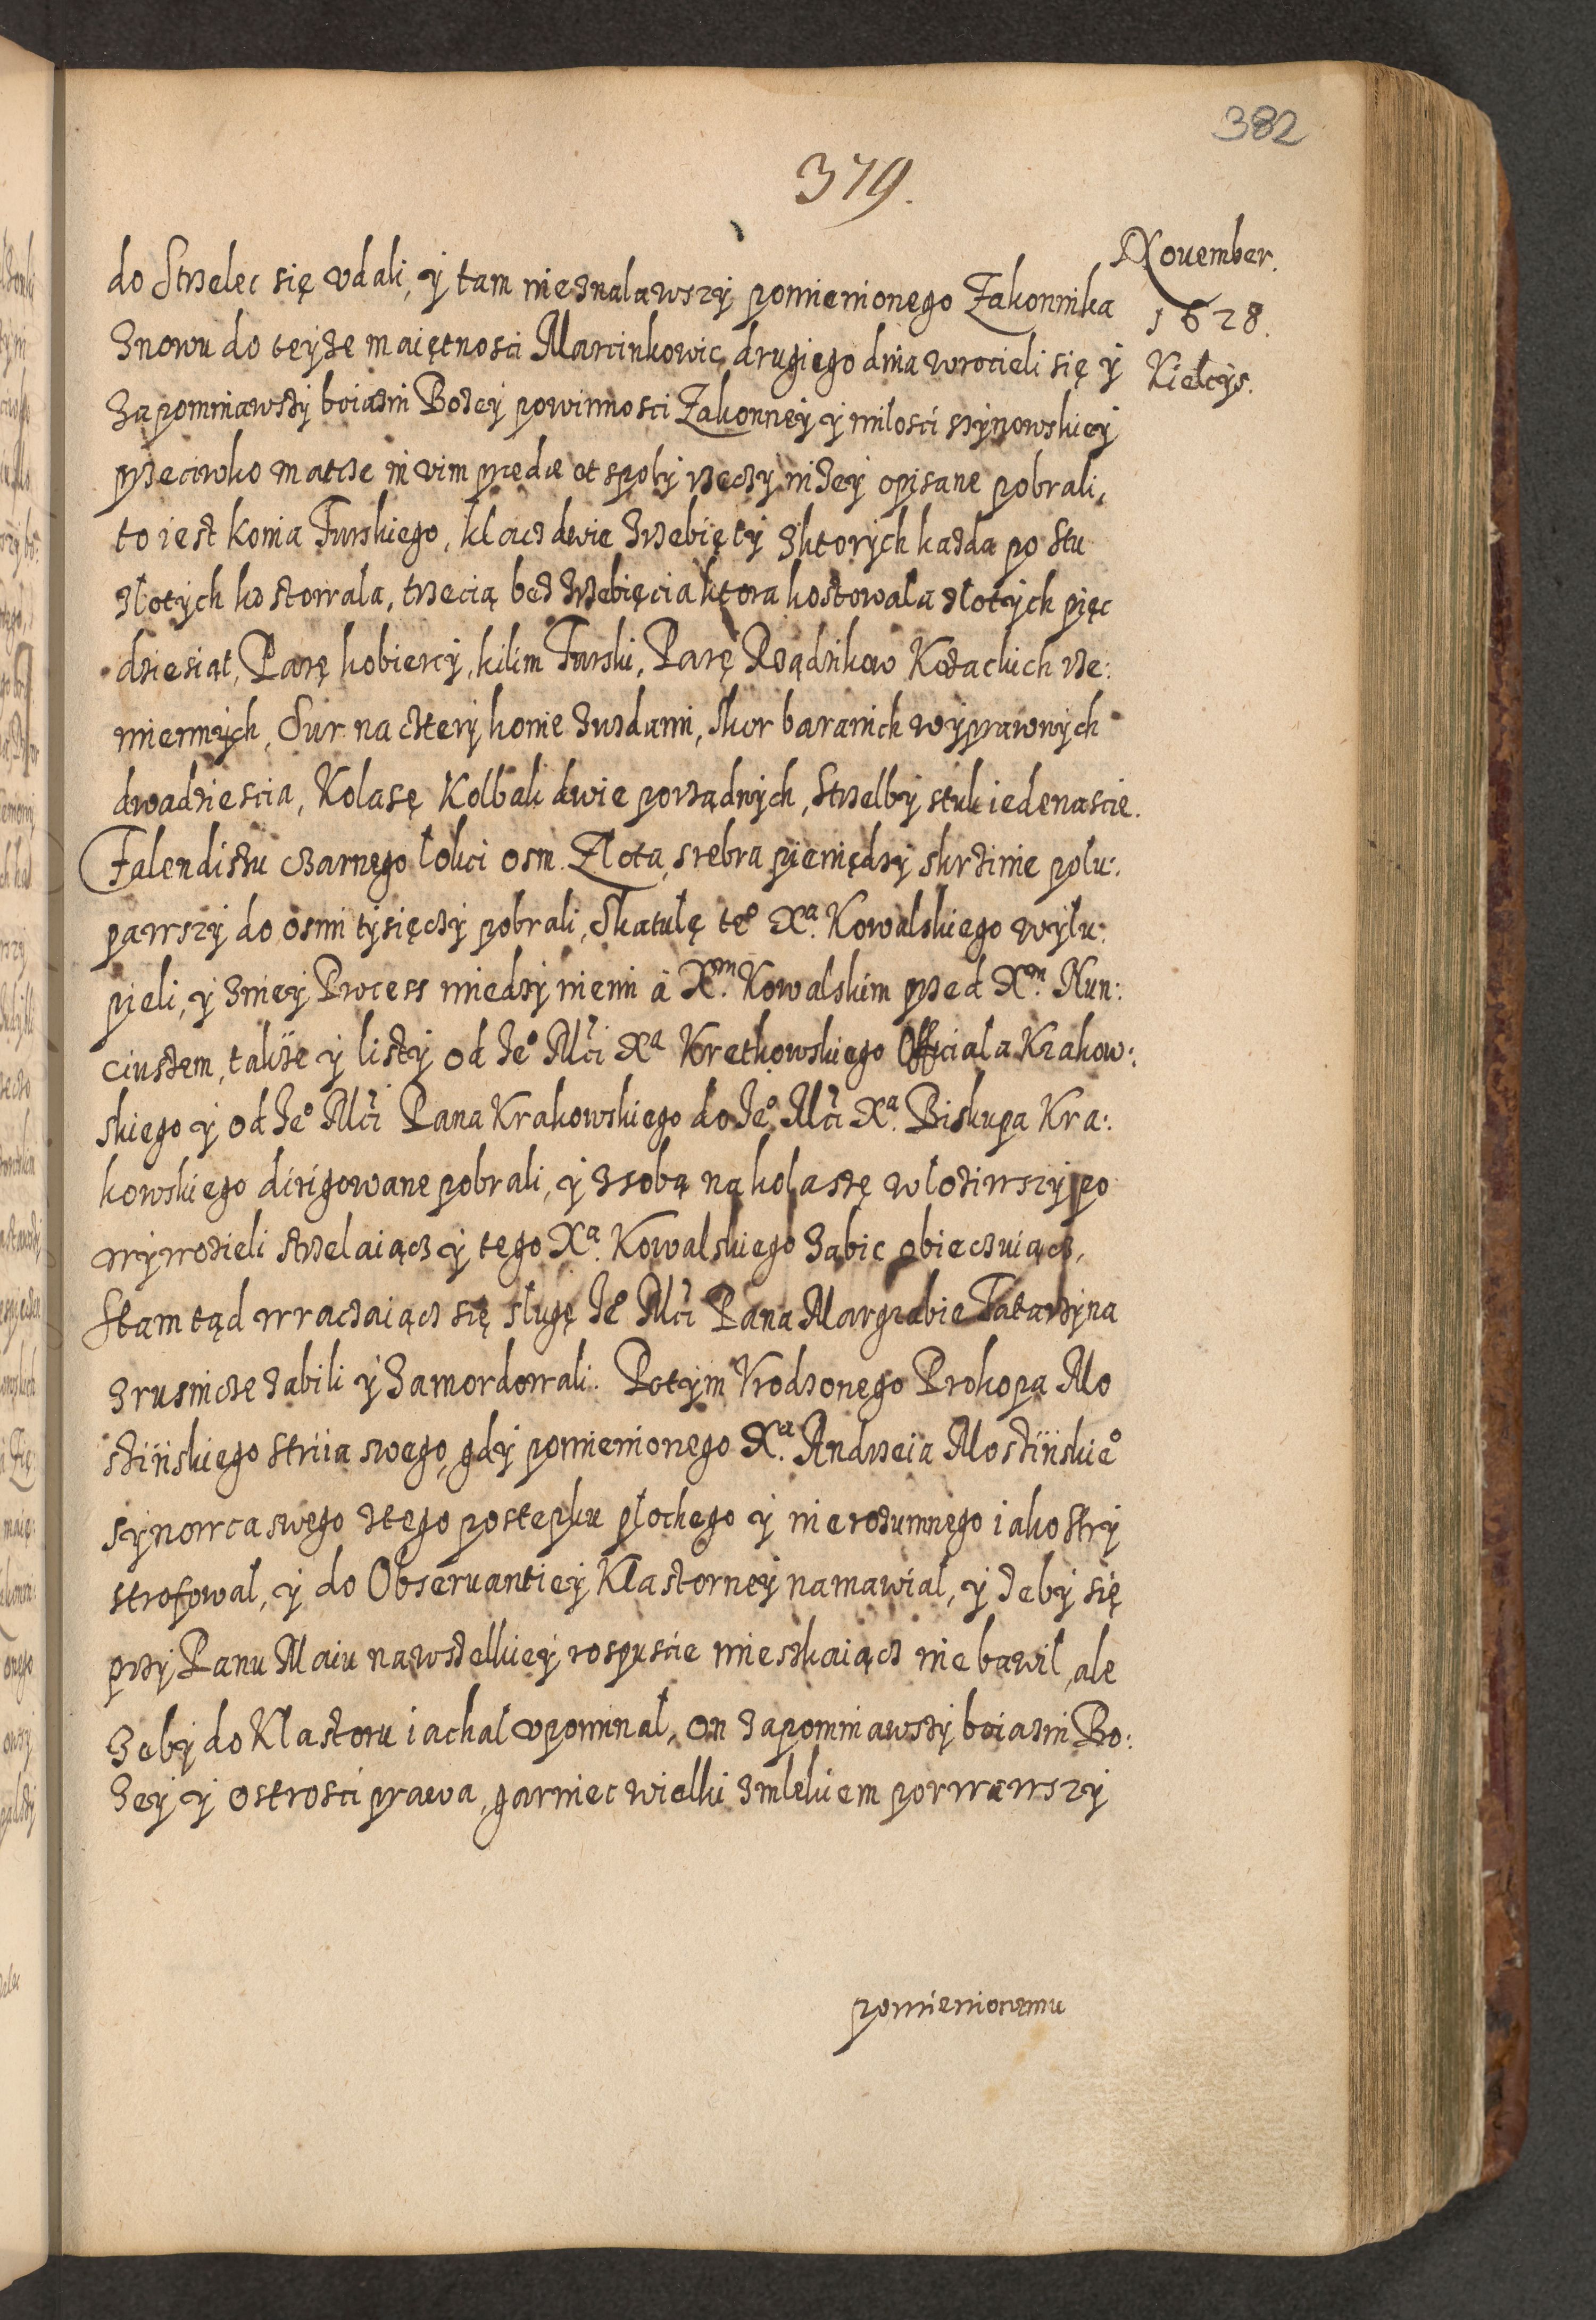 382
379.
November.
1628.
Kielcys.
do Strzelec się vdali, y tam nieznalawszy pomienionego Zakonnika
znowu do teyze maiętnosci Marcinkowic drugiego dnia wrocieli się y
zapomniawszy boiazni Bozey powinnosci Zakonney y milosci synowskiey
przeciwko matce in vim prędæ et spoly rzeczy nizey opisane pobrali,
to iest konia Turskiego, klacz dwie zrzebięty zktorych kazda po stu
złotych kosztowala, trzecią bez zrzebięcia ktora kosztowala złotych pięc
dziesiąt, Parę kobiercy, kilim Turski, Parę Rządzikow Kozackich rze:
miennych, Sur na cztery konie zuzdami, skor baranich wyprawnych
dwadziescia, Kolasę Kolbak dwie porządnych, Strzelby sztuk iedenascie.
Falendiszu czarnego lokci osm. Zlota, srebra pieniędzy skrzinie polu:
pawszy do osmi tysięczy pobrali, Skatulę te° Xª. Kowalskiego wylu:
pieli, y zniey Process miedzy niemi á Xᵐ. Kowalskim przed Xᵐ. Nun:
ciuszem, takze y listy od Je° Mci Xª Kretkowskiego Officiala Krakow:
skiego y od Je° Mci Pana Krakowskiego do Je° Mci Xª. Biskupa Kra:
kowskiego dirigowane pobrali, y zsobą na kolaszę wloziwszy po
wywozieli strzelaiącz y tego Xª. Kowalskiego zabic obieczuiącz,
Stamtąd wraczaiącz się slugę Je° Mci Pana Margrabie Tatarzyna
zrusnicze zabili y zamordowali. Potym Vrodzonego Prokopa Mo
szÿnskiego striia swego, gdy pomienionego Xª. Andrzeia Moszÿnskie°
synowca swego ztego postepku plochego y nierozumnego iako stry
strofowal, y do Obseruantiey Klasztorney namawial, y zeby się
przy Panu Maiu nawszelkiey rospuscie mieszkaiącz nie bawil, ale
zeby do Klasztoru iachal vpominal, on zapomniawszy boiazni Bo:
zey y ostrosci prawa, garniec wielki zmlekiem porwawszy
pomienionemu